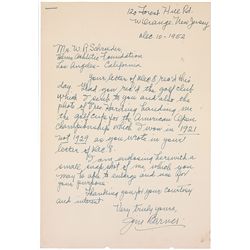 120 Forest Hill Rd.
W. Orange, New Jersey
Dec. 10 - 1952
Mr. W. R. Schroeder
Helms Athletic Foundation
Los Angeles - California
Your letter of Dec 8 rec'd this
day. Glad you rec'd the golf club
which I sent to you and also the
photo of Pres Harding handing me
the golf cup for the American Open
Championship which I won in 1921
not 1929 as you wrote in your
letter of Dec 8.
I am enclosing herewith a
small snapshot of me which you
may be able to enlarge and use for
your purpose.
Thanking you for your courtesy
and interest
Very truly yours,
Jim Barnes